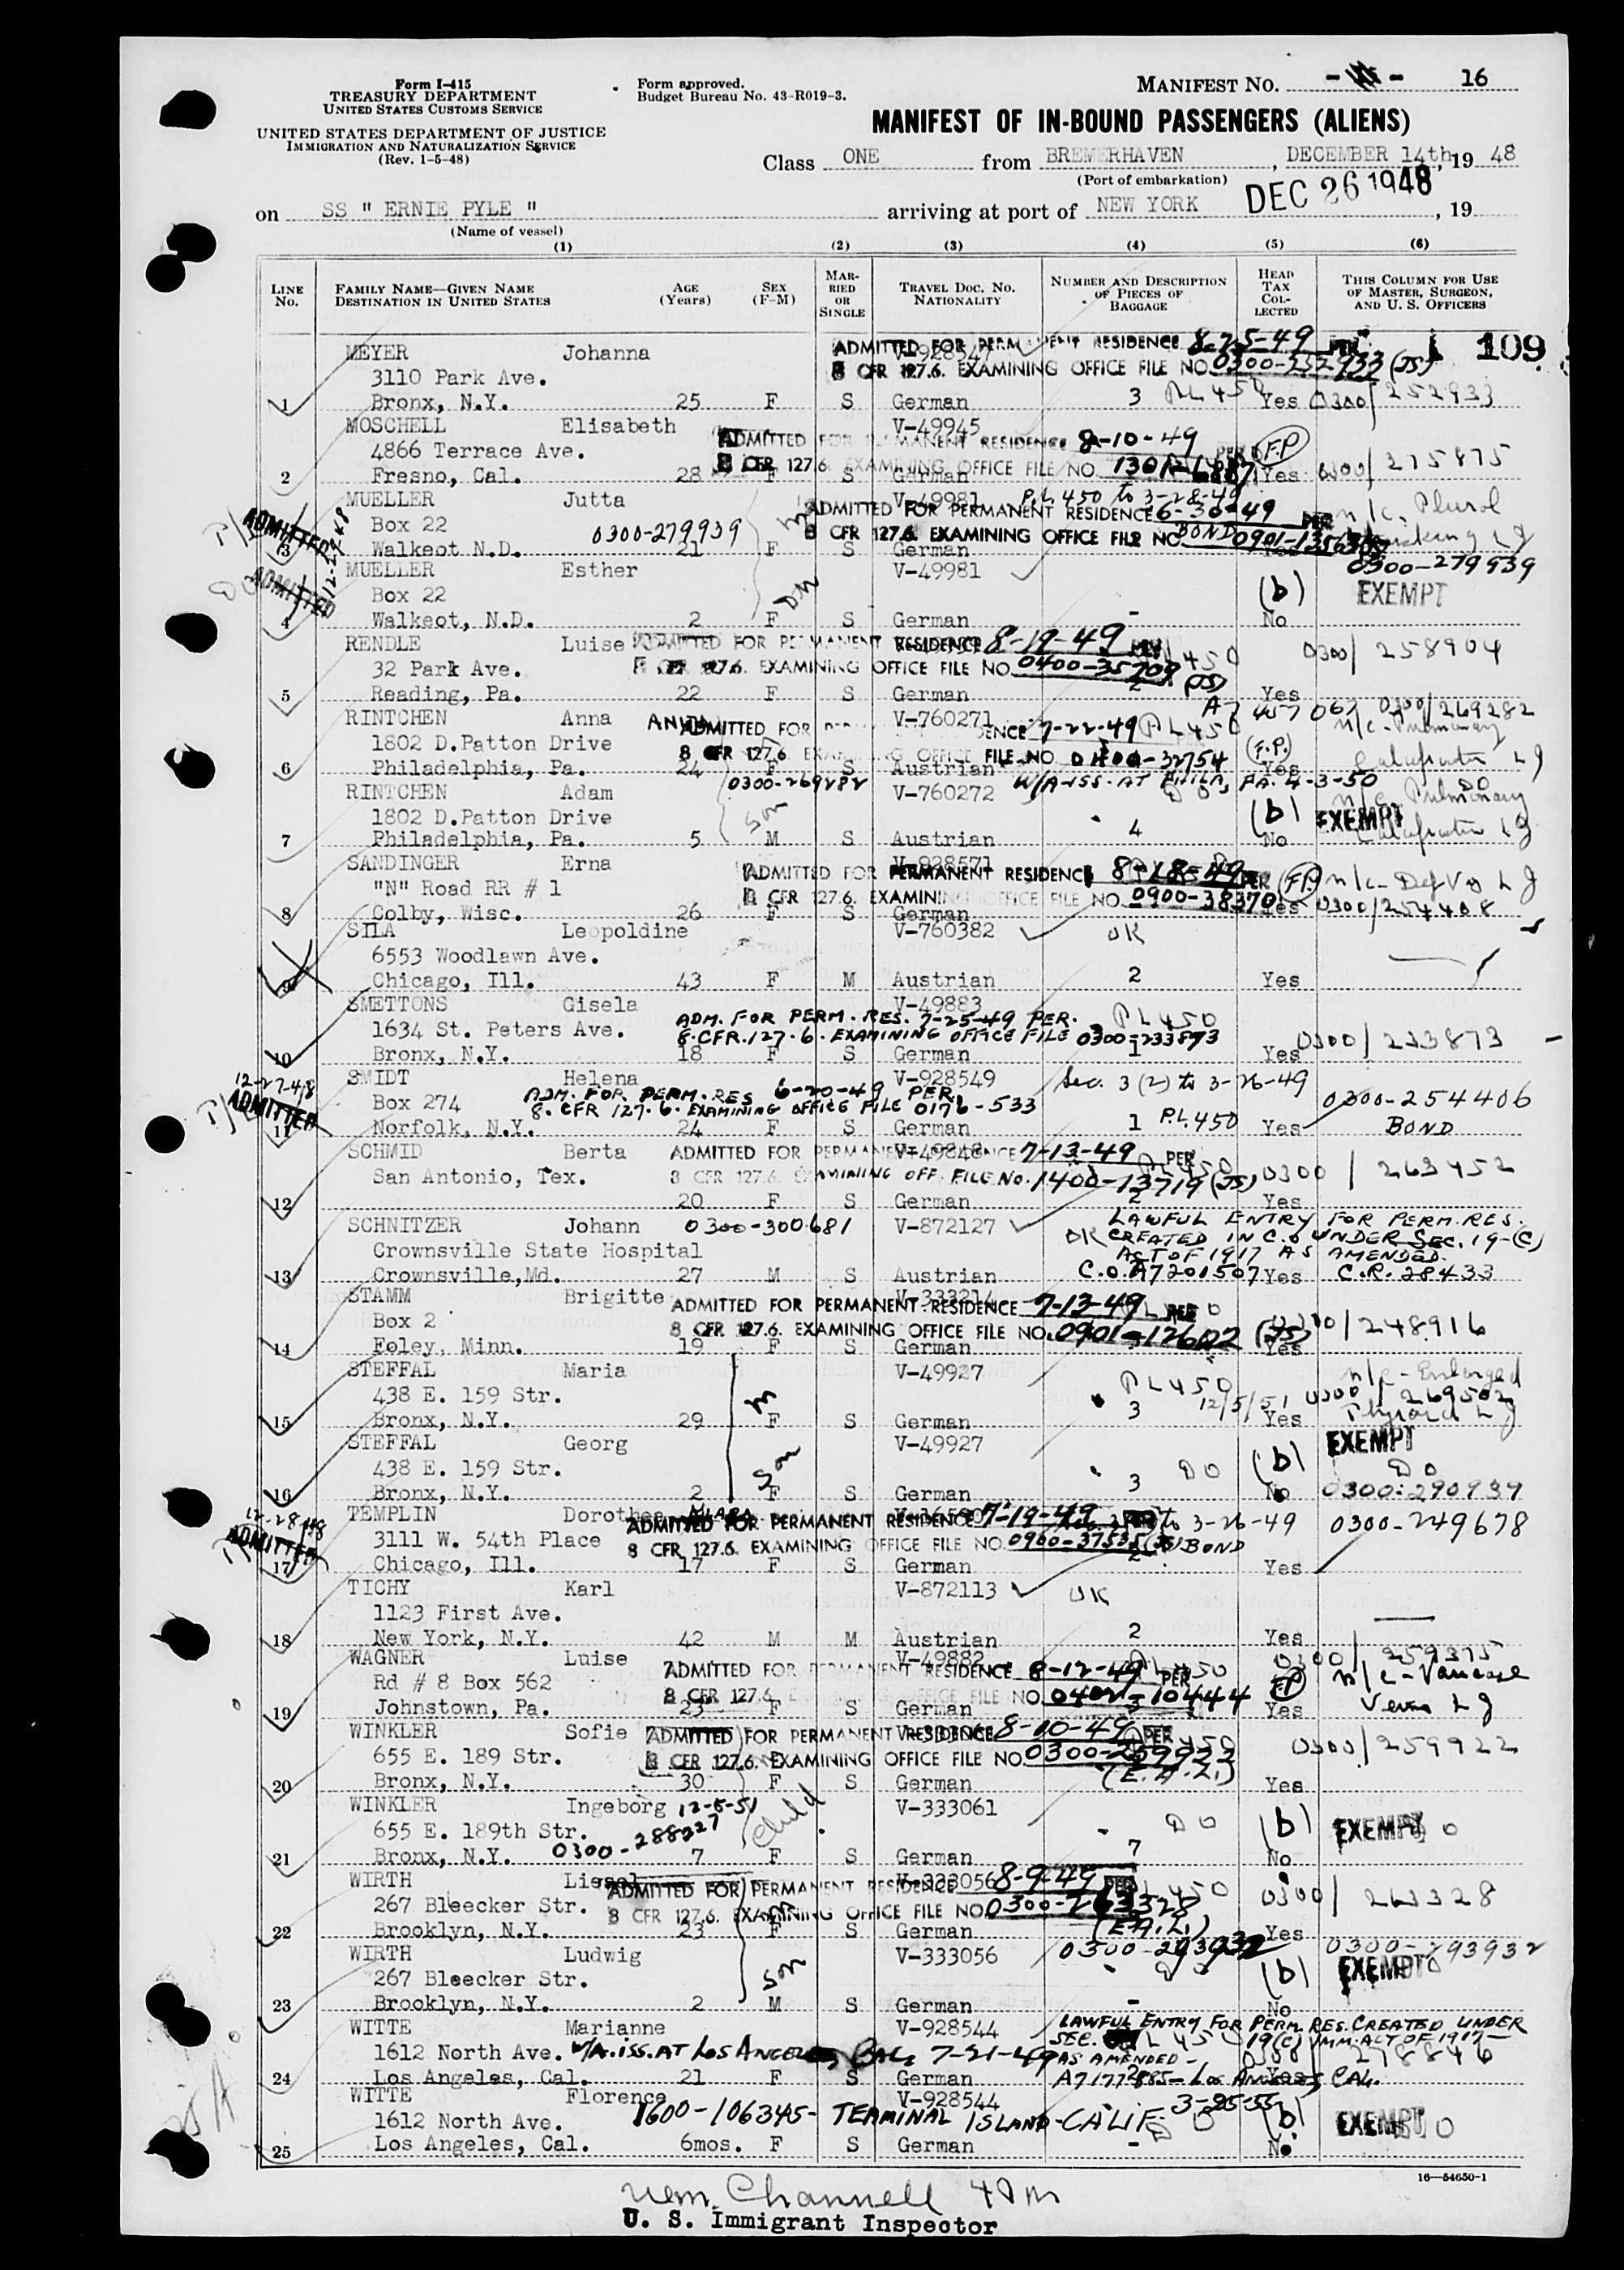 Form I-415
TREASURY DEPARTMENT
UNITED STATES CUSTOMS SERVICE
UNITED STATES DEPARTMENT OF JUSTICE
IMMIGRATION AND NATURALIZATION SERVICE
(Rev. 1-5-48)
Form approved.
Budget Bureau No. 43-R019-3.
MANIFEST NO. 16
MANIFEST OF IN-BOUND PASSENGERS (ALIENS)
Class ONE from BREMERHAVEN, DECEMBER 14th, 19 48
(Port of embarkation)
DEC 26 1948
on SS " ERNIE PYLE " arriving at port of NEW YORK, 19
(Name of vessel)
(1) (2) (3) (4) (5) (6)
LINE No. FAMILY NAME—GIVEN NAME DESTINATION IN UNITED STATES AGE (Years) SEX (F-M) MARRIED OR SINGLE TRAVEL DOC. NO. NATIONALITY NUMBER AND DESCRIPTION OF PIECES OF BAGGAGE HEAD TAX COLLECTED THIS COLUMN FOR USE OF MASTER, SURGEON, AND U. S. OFFICERS
109
MEYER Johanna V-928547 ADMITTED FOR PERMANENT RESIDENCE 8-25-49
3110 Park Ave. 8 CFR 127.6. EXAMINING OFFICE FILE NO. 0300-252933 (JS)
1 Bronx, N.Y. 25 F S German 3 PL 450 Yes 0300/252933
MOSCHELL Elisabeth V-49945
4866 Terrace Ave. ADMITTED FOR PERMANENT RESIDENCE 8-10-49 PER (F.P)
2 Fresno, Cal. 28 F S German 8 CFR 127.6. EXAMINING OFFICE FILE NO. Yes 0300/275875
MUELLER Jutta V-49981 P.L. 450 to 3-28-49
Box 22 0300-279939 ADMITTED FOR PERMANENT RESIDENCE 6-30-49 PER
3 Walkeot N.D. 21 F S German 8 CFR 127.6. EXAMINING OFFICE FILE NO. BOND
ADMITTED
MUELLER Esther V-49981 0300-279939
Box 22 (b) EXEMPT
4 Walkeot, N.D. 2 F S German - No
ADMITTED
RENDLE Luise ADMITTED FOR PERMANENT RESIDENCE 8-19-49
32 Park Ave. 8 CFR 127.6. EXAMINING OFFICE FILE NO. 0400-35709 (JS) 0300/258904
5 Reading, Pa. 22 F S German 2 Yes
RINTCHEN Anna ANITA V-760271 A7 457 067 0300/269282
1802 D.Patton Drive ADMITTED FOR 7-22-49 PL 450 n/c-Pulmonary
6 Philadelphia, Pa. 24 F S Austrian 8 CFR 127.6 EXAMINING OFFICE FILE NO. 0400-32754 (F.P.) Yes
RINTCHEN Adam 0300-269282 V-760272 W/A-ISS. AT PHILA, PA. 4-3-50
1802 D.Patton Drive son (b) EXEMPT
7 Philadelphia, Pa. 5 M S Austrian 4 No
SANDINGER Erna V-928571
"N" Road RR # 1 ADMITTED FOR PERMANENT RESIDENCE 8-18-49 PER (F.P.)
8 Colby, Wisc. 26 F S German 8 CFR 127.6. EXAMINING OFFICE FILE NO. 0900-38370 Yes 0300/254408
SILA Leopoldine V-760382 OK
6553 Woodlawn Ave.
9 Chicago, Ill. 43 F M Austrian 2 Yes
SMETTONS Gisela V-49883
1634 St. Peters Ave. ADM. FOR PERM. RES. 7-25-49 PER. PL 450
8.CFR.127.6. EXAMINING OFFICE FILE 0300-233873
10 Bronx, N.Y. 18 F S German 1 Yes 0300/233873
SMIDT Helena V-928549 Sec. 3(2) to 3-26-49
12-27-48 ADMITTED
Box 274 ADM. FOR PERM. RES 6-20-49 PER 0300-254406
8. CFR 127.6. EXAMINING OFFICE FILE 0176-533
11 Norfolk, N.Y. 24 F S German 1 P.L. 450 Yes BOND
SCHMID Berta V-49848 ADMITTED FOR PERMANENT RESIDENCE 7-13-49 PER
San Antonio, Tex. 8 CFR 127.6. EXAMINING OFF. FILE NO. 1400-13719 (JS) 0300/263452
12 20 F S German 2 Yes
SCHNITZER Johann 0300-300681 V-872127 LAWFUL ENTRY FOR PERM. RES.
Crownsville State Hospital OK CREATED IN C.O UNDER SEC. 19-(C)
ACT OF 1917 AS AMENDED.
13 Crownsville,Md. 27 M S Austrian C.O. A7201507 Yes C.R. 28433
STAMM Brigitte V-333214 ADMITTED FOR PERMANENT RESIDENCE 7-13-49
Box 2 8 CFR 127.6. EXAMINING OFFICE FILE NO. 0901-12602 (JS) 0300/248916
14 Foley, Minn. 19 F S German Yes
STEFFAL Maria V-49927 n/c-Enlarged
438 E. 159 Str. PL 450 12/5/51 0300/269502
15 Bronx, N.Y. 29 F S German 3 Yes Thyroid
STEFFAL Georg V-49927 EXEMPT
438 E. 159 Str. son DO (b) DO
16 Bronx, N.Y. 2 F S German 3 No 0300-290939
TEMPLIN Dorothea ADMITTED FOR PERMANENT RESIDENCE 7-19-49 to 3-26-49 0300-249678
3111 W. 54th Place 8 CFR 127.6. EXAMINING OFFICE FILE NO. 0900-37535 (JS) BOND
17 Chicago, Ill. 17 F S German 2 Yes
12-28-48 ADMITTED
TICHY Karl V-872113 OK
1123 First Ave.
18 New York, N.Y. 42 M M Austrian 2 Yes
WAGNER Luise V-49882 0300/259375
Rd # 8 Box 562 ADMITTED FOR PERMANENT RESIDENCE 8-12-49 PER (FP) n/c-Varicose
19 Johnstown, Pa. 23 F S German 8 CFR 127.6 OFFICE FILE NO. 0402-10444 Yes Veins
WINKLER Sofie ADMITTED FOR PERMANENT RESIDENCE 8-10-49 PER
655 E. 189 Str. 8 CFR 127.6. EXAMINING OFFICE FILE NO. 0300-259922 0300/259922
20 Bronx, N.Y. 30 F S German (E.A.L.) Yes
WINKLER Ingeborg 12-5-51 V-333061
655 E. 189th Str. 0300-288227 child DO (b) EXEMPT
21 Bronx, N.Y. 7 F S German 7 No
WIRTH Liesel V-333056 8-9-49 PER
267 Bleecker Str. ADMITTED FOR PERMANENT RESIDENCE 0300/263328
8 CFR 127.6. EXAMINING OFFICE FILE NO. 0300-263328
22 Brooklyn, N.Y. 23 F S German (E.A.L.) Yes
WIRTH Ludwig V-333056 0300-293932 0300-293932
267 Bleecker Str. son DO (b) EXEMPT
23 Brooklyn, N.Y. 2 M S German - No
WITTE Marianne V-928544 LAWFUL ENTRY FOR PERM. RES. CREATED UNDER
SEC. 19(C) IMM. ACT OF 1917-
1612 North Ave. W/A. ISS. AT LOS ANGELES, CAL. 7-21-49 AS AMENDED- 278846
24 Los Angeles, Cal. 21 F S German A7177885-Los Angeles, CAL. Yes
WITTE Florence V-928544 3-25-55
1612 North Ave. 1600-106345- TERMINAL ISLAND-CALIF. DO (b) EXEMPT DO
25 Los Angeles, Cal. 6mos. F S German - No
16—54650-1
U. S. Immigrant Inspector